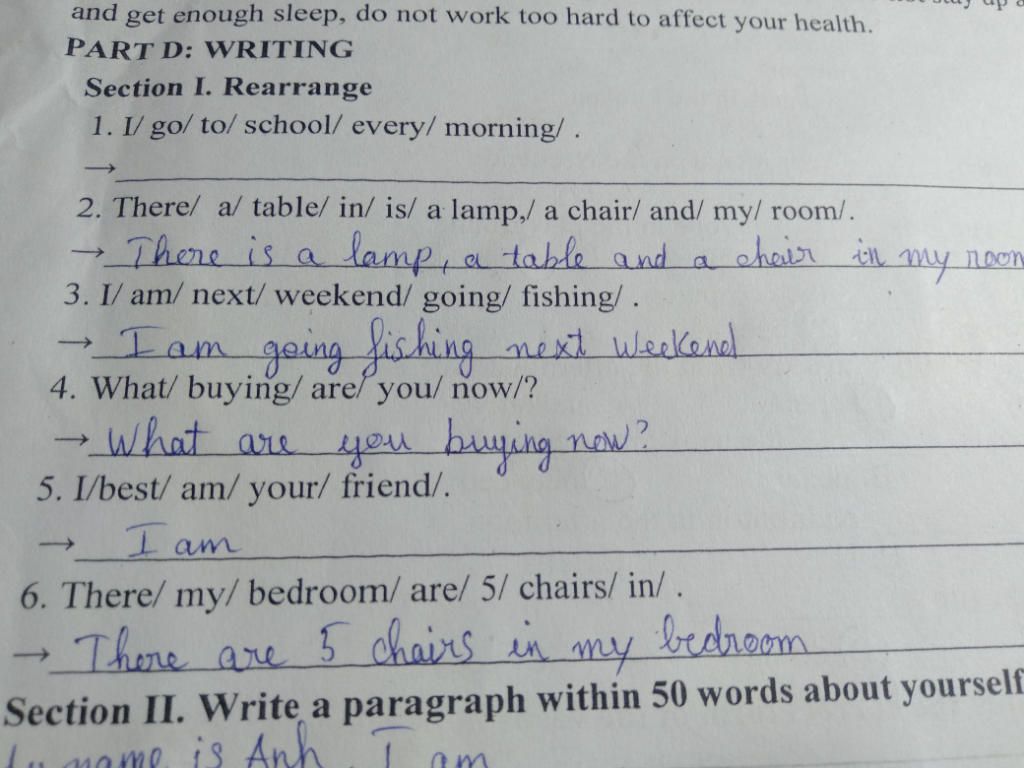 and get enough sleep, do not work too hard to affect your health.
PART D: WRITING
Section I. Rearrange
1. I/ go/ to/ school/ every/ morning/ .
→
2. There/ a/ table/ in/ is/ a lamp,/ a chair/ and/ my/ room/.
→ There is a lamp, a table and a chair in my room
3. I/ am/ next/ weekend/ going/ fishing/ .
→ I am going fishing next weekend
4. What/ buying/ are/ you/ now/?
→ What are you buying now?
5. I/best/ am/ your/ friend/.
→ I am
6. There/ my/ bedroom/ are/ 5/ chairs/ in/ .
→ There are 5 chairs in my bedroom
Section II. Write a paragraph within 50 words about yourself
name is Anh I am